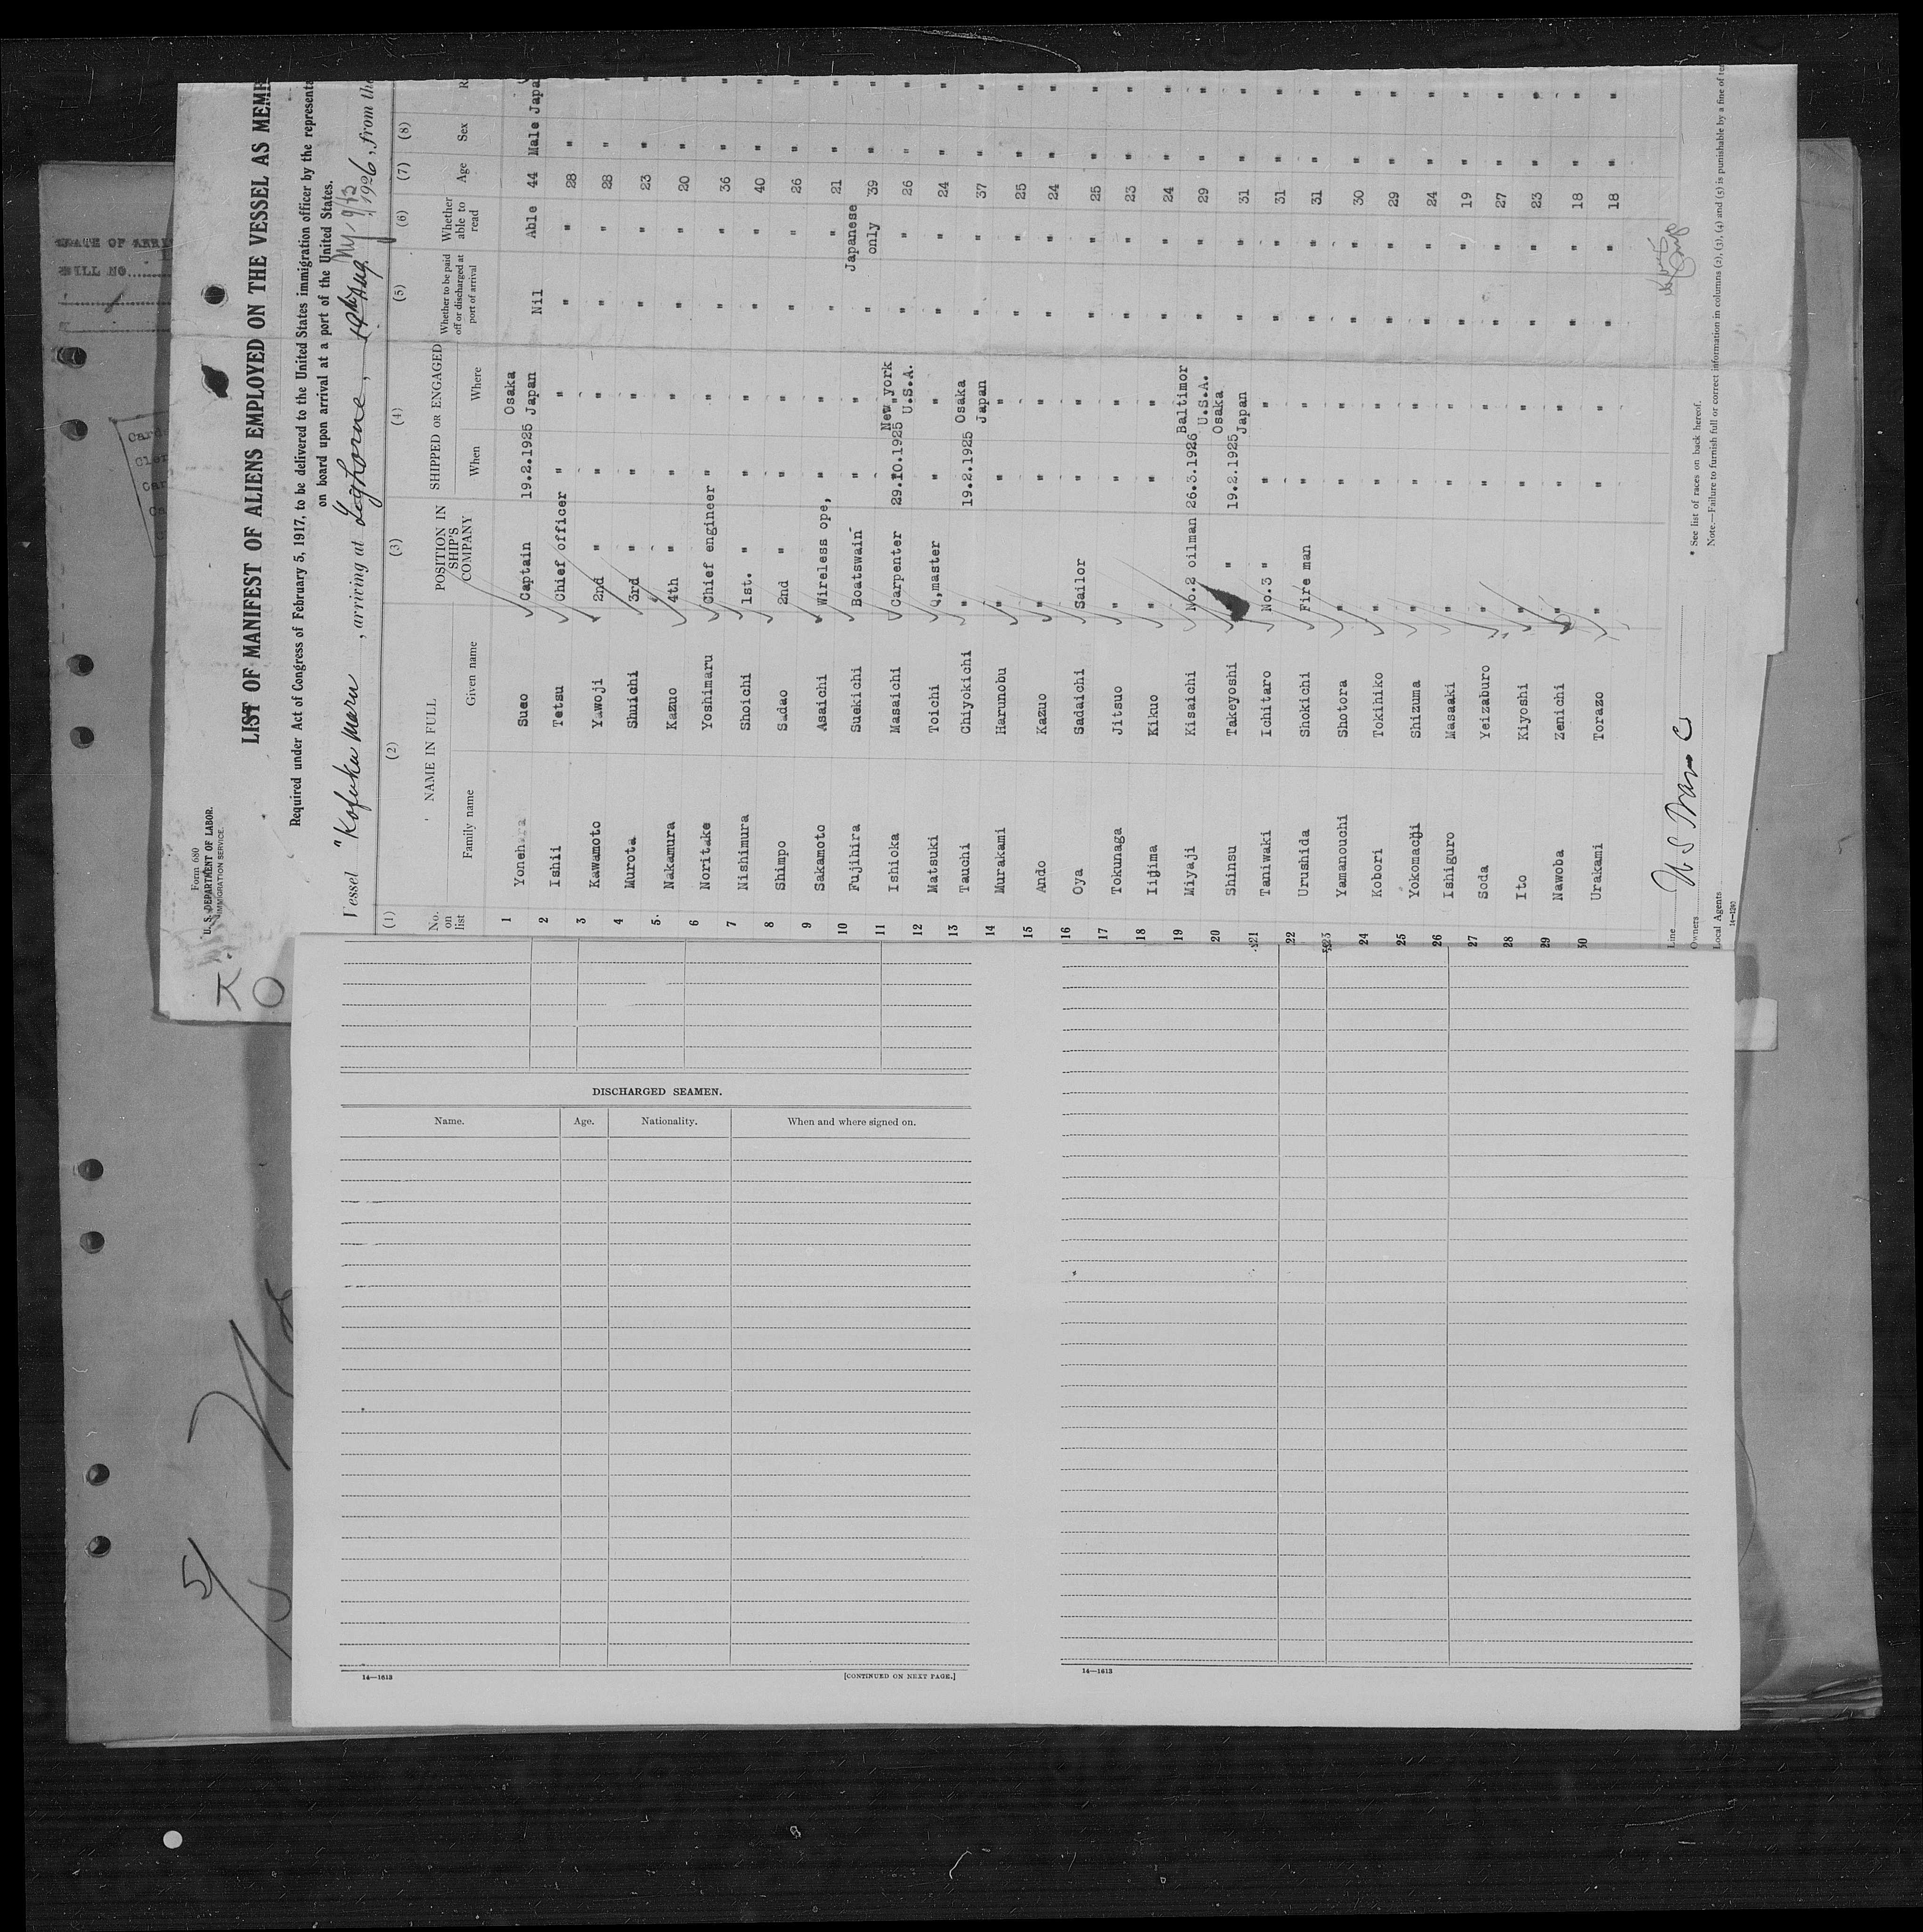 Form 680
U. S. DEPARTMENT OF LABOR.
IMMIGRATION SERVICE.
LIST OF MANIFEST OF ALIENS EMPLOYED ON THE VESSEL AS MEMB
Required under Act of Congress of February 5, 1917, to be delivered to the United States immigration officer by the representa
on board upon arrival at a port of the United States.
Vessel "Kofuku Maru , arriving at Leghorne, 19th Aug. 1926, from the
(1) (2) (3) (4) (5) (6) (7) (8)
No. on list NAME IN FULL POSITION IN SHIP'S COMPANY SHIPPED OR ENGAGED Whether to be paid off or discharged at port of arrival Whether able to read Age Sex R
Family name Given name When Where
1 Yonehara Sueo Captain 19.2.1925 Osaka Japan Nil Able 44 Male Japa
2 Ishii Tetsu Chief officer " " " " 28 " "
3 Kawamoto Yawoji 2nd " " " " " 28 " "
4 Murota Shuichi 3rd " " " " " 23 " "
5. Nakamura Kazuo 4th " " " " " 20 " "
6 Noritake Yoshimaru Chief engineer " " " " 36 " "
7 Nishimura Shoichi 1st. " " " " " 40 " "
8 Shimpo Sadao 2nd " " " " " 26 " "
9 Sakamoto Asaichi Wireless ope, " " " " 21 " "
10 Fujihira Suekichi Boatswain " " " Japanese only 39 " "
11 Ishioka Masaichi Carpenter 29.10.1925 New york U.S.A. " " 26 " "
12 Matsuki Toichi Q,master " " " " 24 " "
13 Tauchi Chiyokichi " 19.2.1925 Osaka Japan " " 37 " "
14 Murakami Harunobu " " " " " 25 " "
15 Ando Kazuo " " " " " 24 " "
16 Oya Sadaichi Sailor " " " " 25 " "
17 Tokunaga Jitsuo " " " " " 23 " "
18 Iijima Kikuo " " " " " 24 " "
19 Miyaji Kisaichi No.2 oilman 26.3.1926 Baltimor U.S.A. " " 29 " "
20 Shinsu Takeyoshi " " 19.2.1925 Osaka Japan " " 31 " "
21 Taniwaki Ichitaro No.3 " " " " " 31 " "
22 Urushida Shokichi Fire man " " " " 31 " "
23 Yamanouchi Shotora " " " " " 30 " "
24 Kobori Tokihiko " " " " " 29 " "
25 Yokomachi Shizuma " " " " " 24 " "
26 Ishiguro Masaaki " " " " " 19 " "
27 Soda Yeizaburo " " " " " 27 " "
28 Ito Kiyoshi " " " " " 23 " "
29 Nawoba Zenichi " " " " " 18 " "
30 Urakami Torazo " " " " " 18 " "
Line
Owners
Local Agents
14—1240
* See list of races on back hereof.
Note.—Failure to furnish full or correct information in columns (2), (3), (4) and (5) is punishable by a fine of te
DISCHARGED SEAMEN.
Name. Age. Nationality. When and where signed on.
14—1613
[CONTINUED ON NEXT PAGE.]
14—1613
BILL NO.